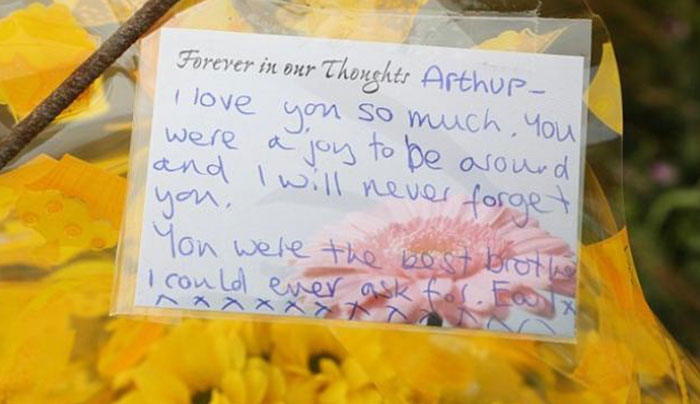 Forever in our Thoughts Arthur-
I love you so much. You
were a joy to be around
and I will never forget
you.
You were the best brothe
I could ever ask for. x
^ x x x x x x x x x x